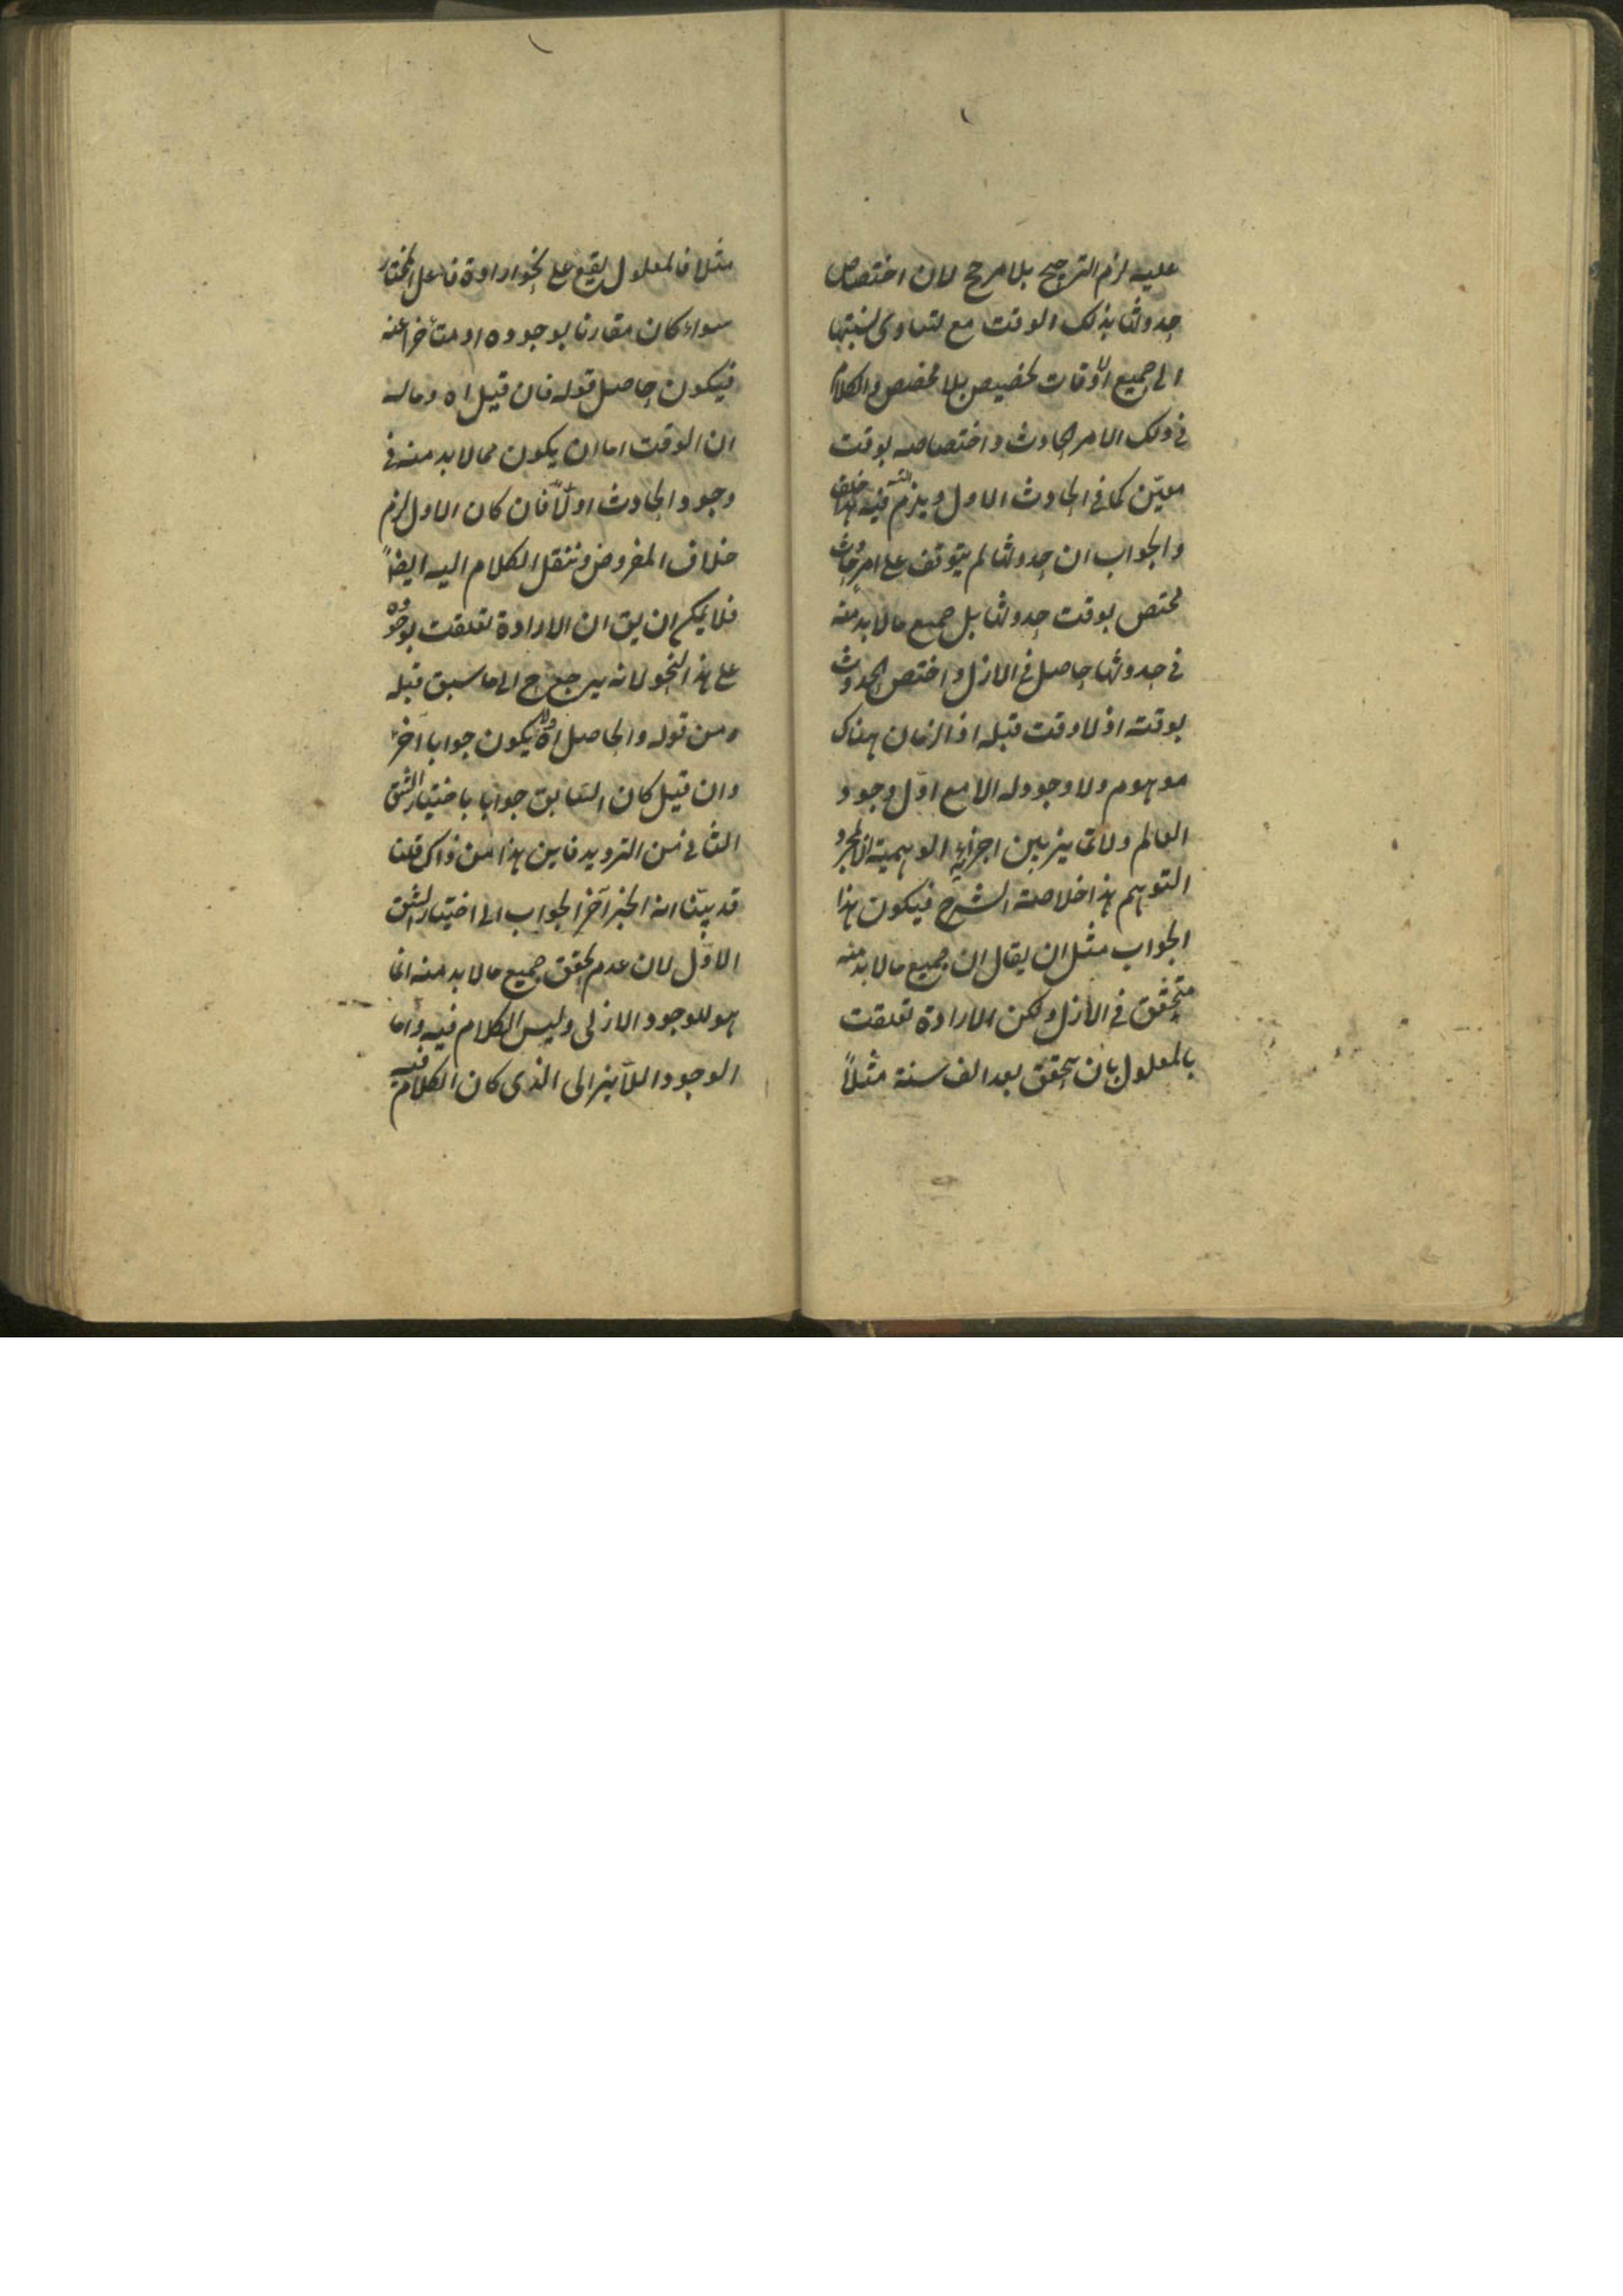 عليه لزم الترجيح بلا مرجح لان اختصاص
حدوثها بذلك الوقت مع تساوى نسبتها
الى جميع الاوقات تخصيص بلا مخصص والكلام
فى ذلك الامر الحادث واختصاصه بوقت
معيّن كما فى الحادث الاول ويلزم التس فيه هذا خلف
والجواب ان حدوثها لم يتوقف على امر حادث
مختص بوقت حدوثها بل جميع ما لا بد منه
فى حدوثها حاصل فى الازل واختص الحدوث
بوقته اذ لا وقت قبله اذ الزمان هناك
موهوم ولا وجود له الا مع اوّل وجود
العالم ولا تمايز بين اجزائه الوهمية الا بمجرد
التوهم هذا خلاصة الشرح فيكون هذا
الجواب مثل ان يقال ان جميع ما لا بد منه
متحقق فى الازل ولكن الارادة تعلقت
بالمعلول بان يتحقق بعد الف سنة مثلاً
مثلا فالمعلول يقع على نحو ارادة فاعل المختار
سواء كان مقارنا لوجوده او متأخرا عنه
فيكون حاصل قوله فان قيل اه وماله
ان الوقت اما ان يكون مما لا بد منه فى
وجود الحادث او لا فان كان الاول لزم
خلاف المفروض وننقل الكلام اليه ايضاً
فلا يمكن ان يق ان الارادة تعلقت بوجوده
على هذا النحو لانه يرجع ح الى ما سبق قبله
ومن قوله والحاصل اه ولا يكون جوابا آخر
وان قيل كان السابق جوابا باختيار الشق
الثانى من الترديد فاين هذا من ذاك قلنا
قد بيّنا انه انجر آخر الجواب الى اختيار الشق
الاوّل لان عدم تحقق جميع ما لا بد منه انما
هو للوجود الازلى وليس الكلام فيه واما
الوجود اللايزالى الذى كان الكلام فيه